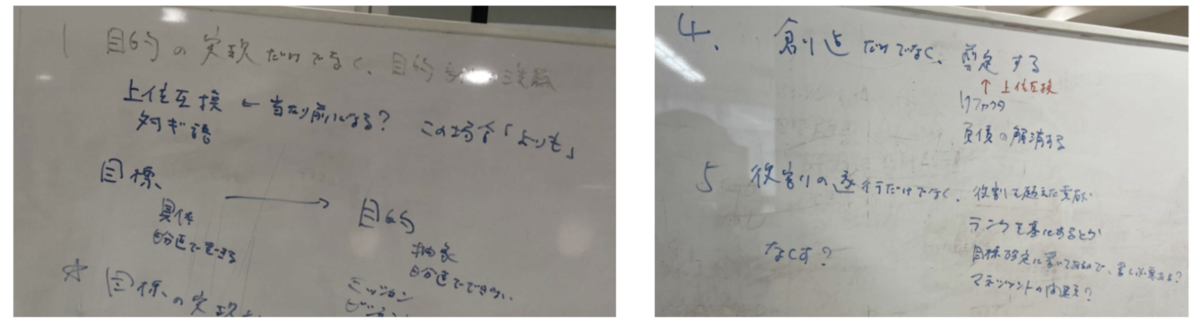 1 目的の実現だけでなく、目的
上位互換 ← 当たり前になる? この場合「よりも」
対ギ語
目標 → 目的
具体
自分達でできる
抽象
自分達でできない
ミッション
ビジョン
☆ 目標の実現
4. 創造だけでなく、剪定する
↑ 上位互換
リファクタ
負債の解消する
5 役割りの遂行だけでなく、役割を超えた貢献
ランク
なくす?
目標設定に
マネジメントの